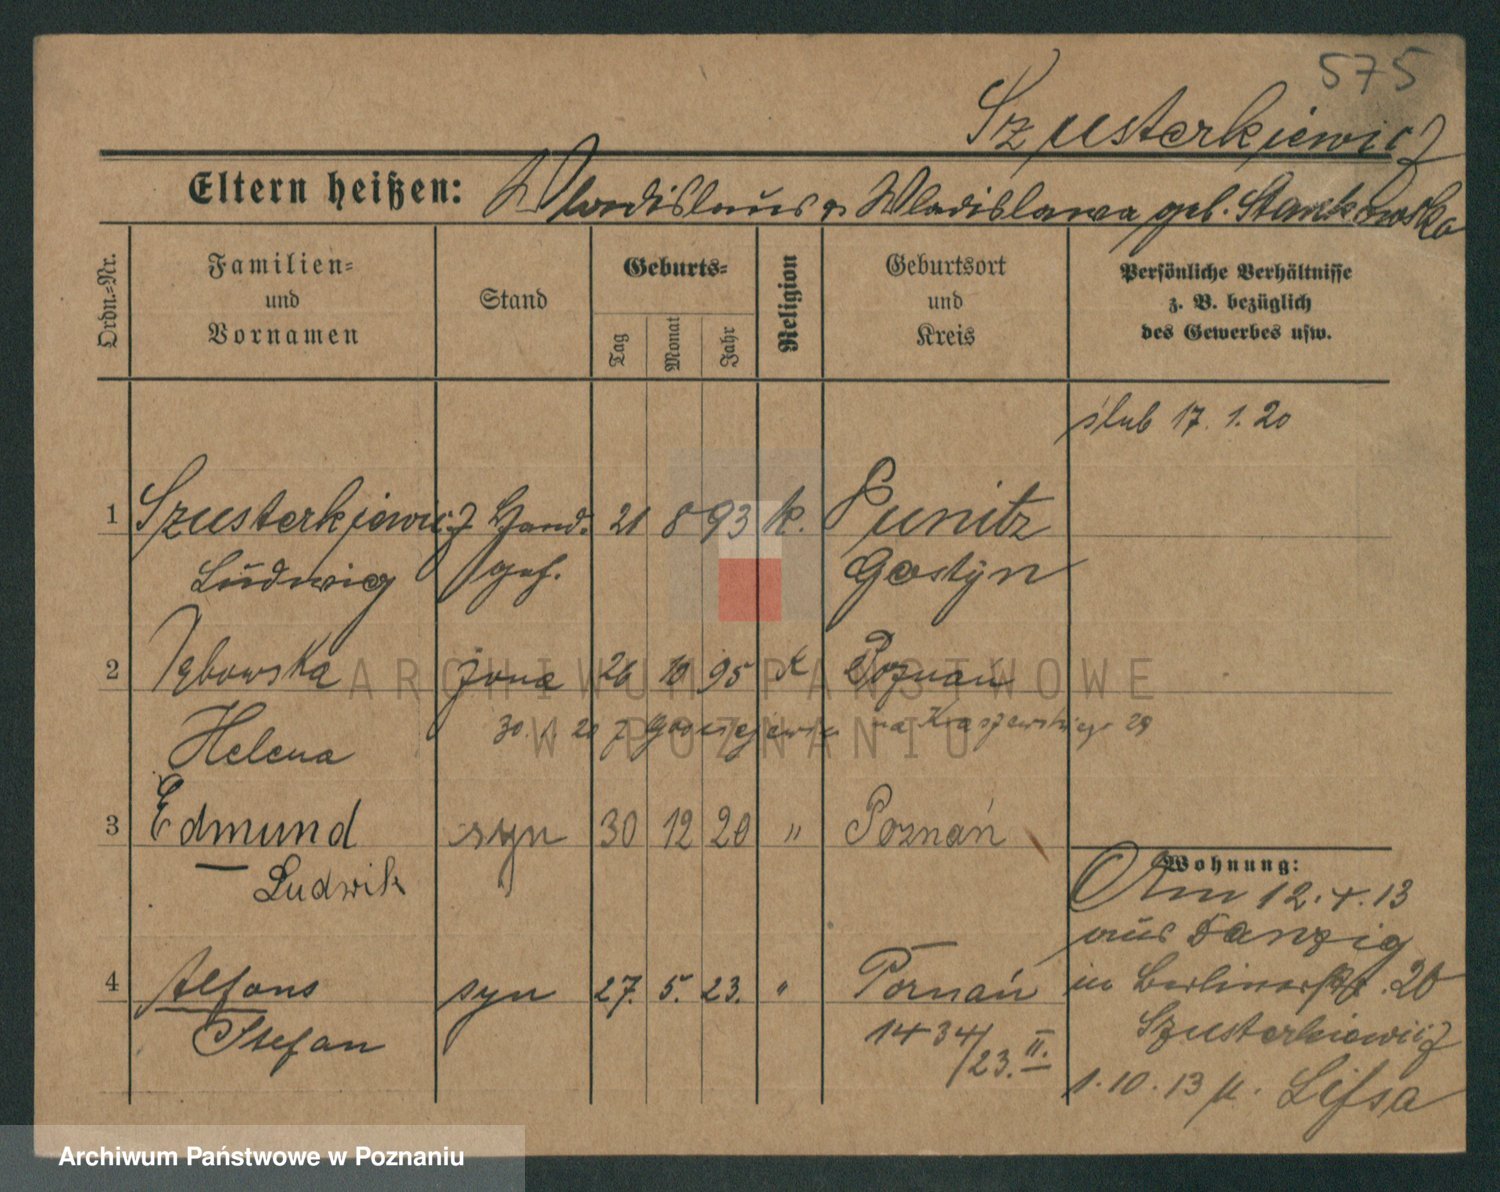 575
Szusterkiewicz
Eltern heißen: Wladislaus u. Wladislawa geb. Stankowska
Ordn.-Nr.
Familien- und Vornamen
Stand
Geburts-
Tag
Monat
Jahr
Religion
Geburtsort und Kreis
Persönliche Verhältnisse
z. B. bezüglich
des Gewerbes usw.
ślub 17. 1. 20
1 Szusterkiewicz Hand. 21 8 93 k. Punitz
Ludwig geh. Gostyn
2 żona 26 10 95 K Poznań
Helena
30. 1. 20 z na Kraszewskiego 29
3 Edmund syn 30 12 20 " Poznań
Ludwik
Wohnung:
Am 12. 4. 13
aus Danzig
in Berlinerstr. 20
Szusterkiewicz
1. 10. 13 n. Lissa
4 Alfons syn 27. 5. 23. " Poznań
Stefan 1434/23. II.
ARCHIWUM PAŃSTWOWE
W POZNANIU
Archiwum Państwowe w Poznaniu